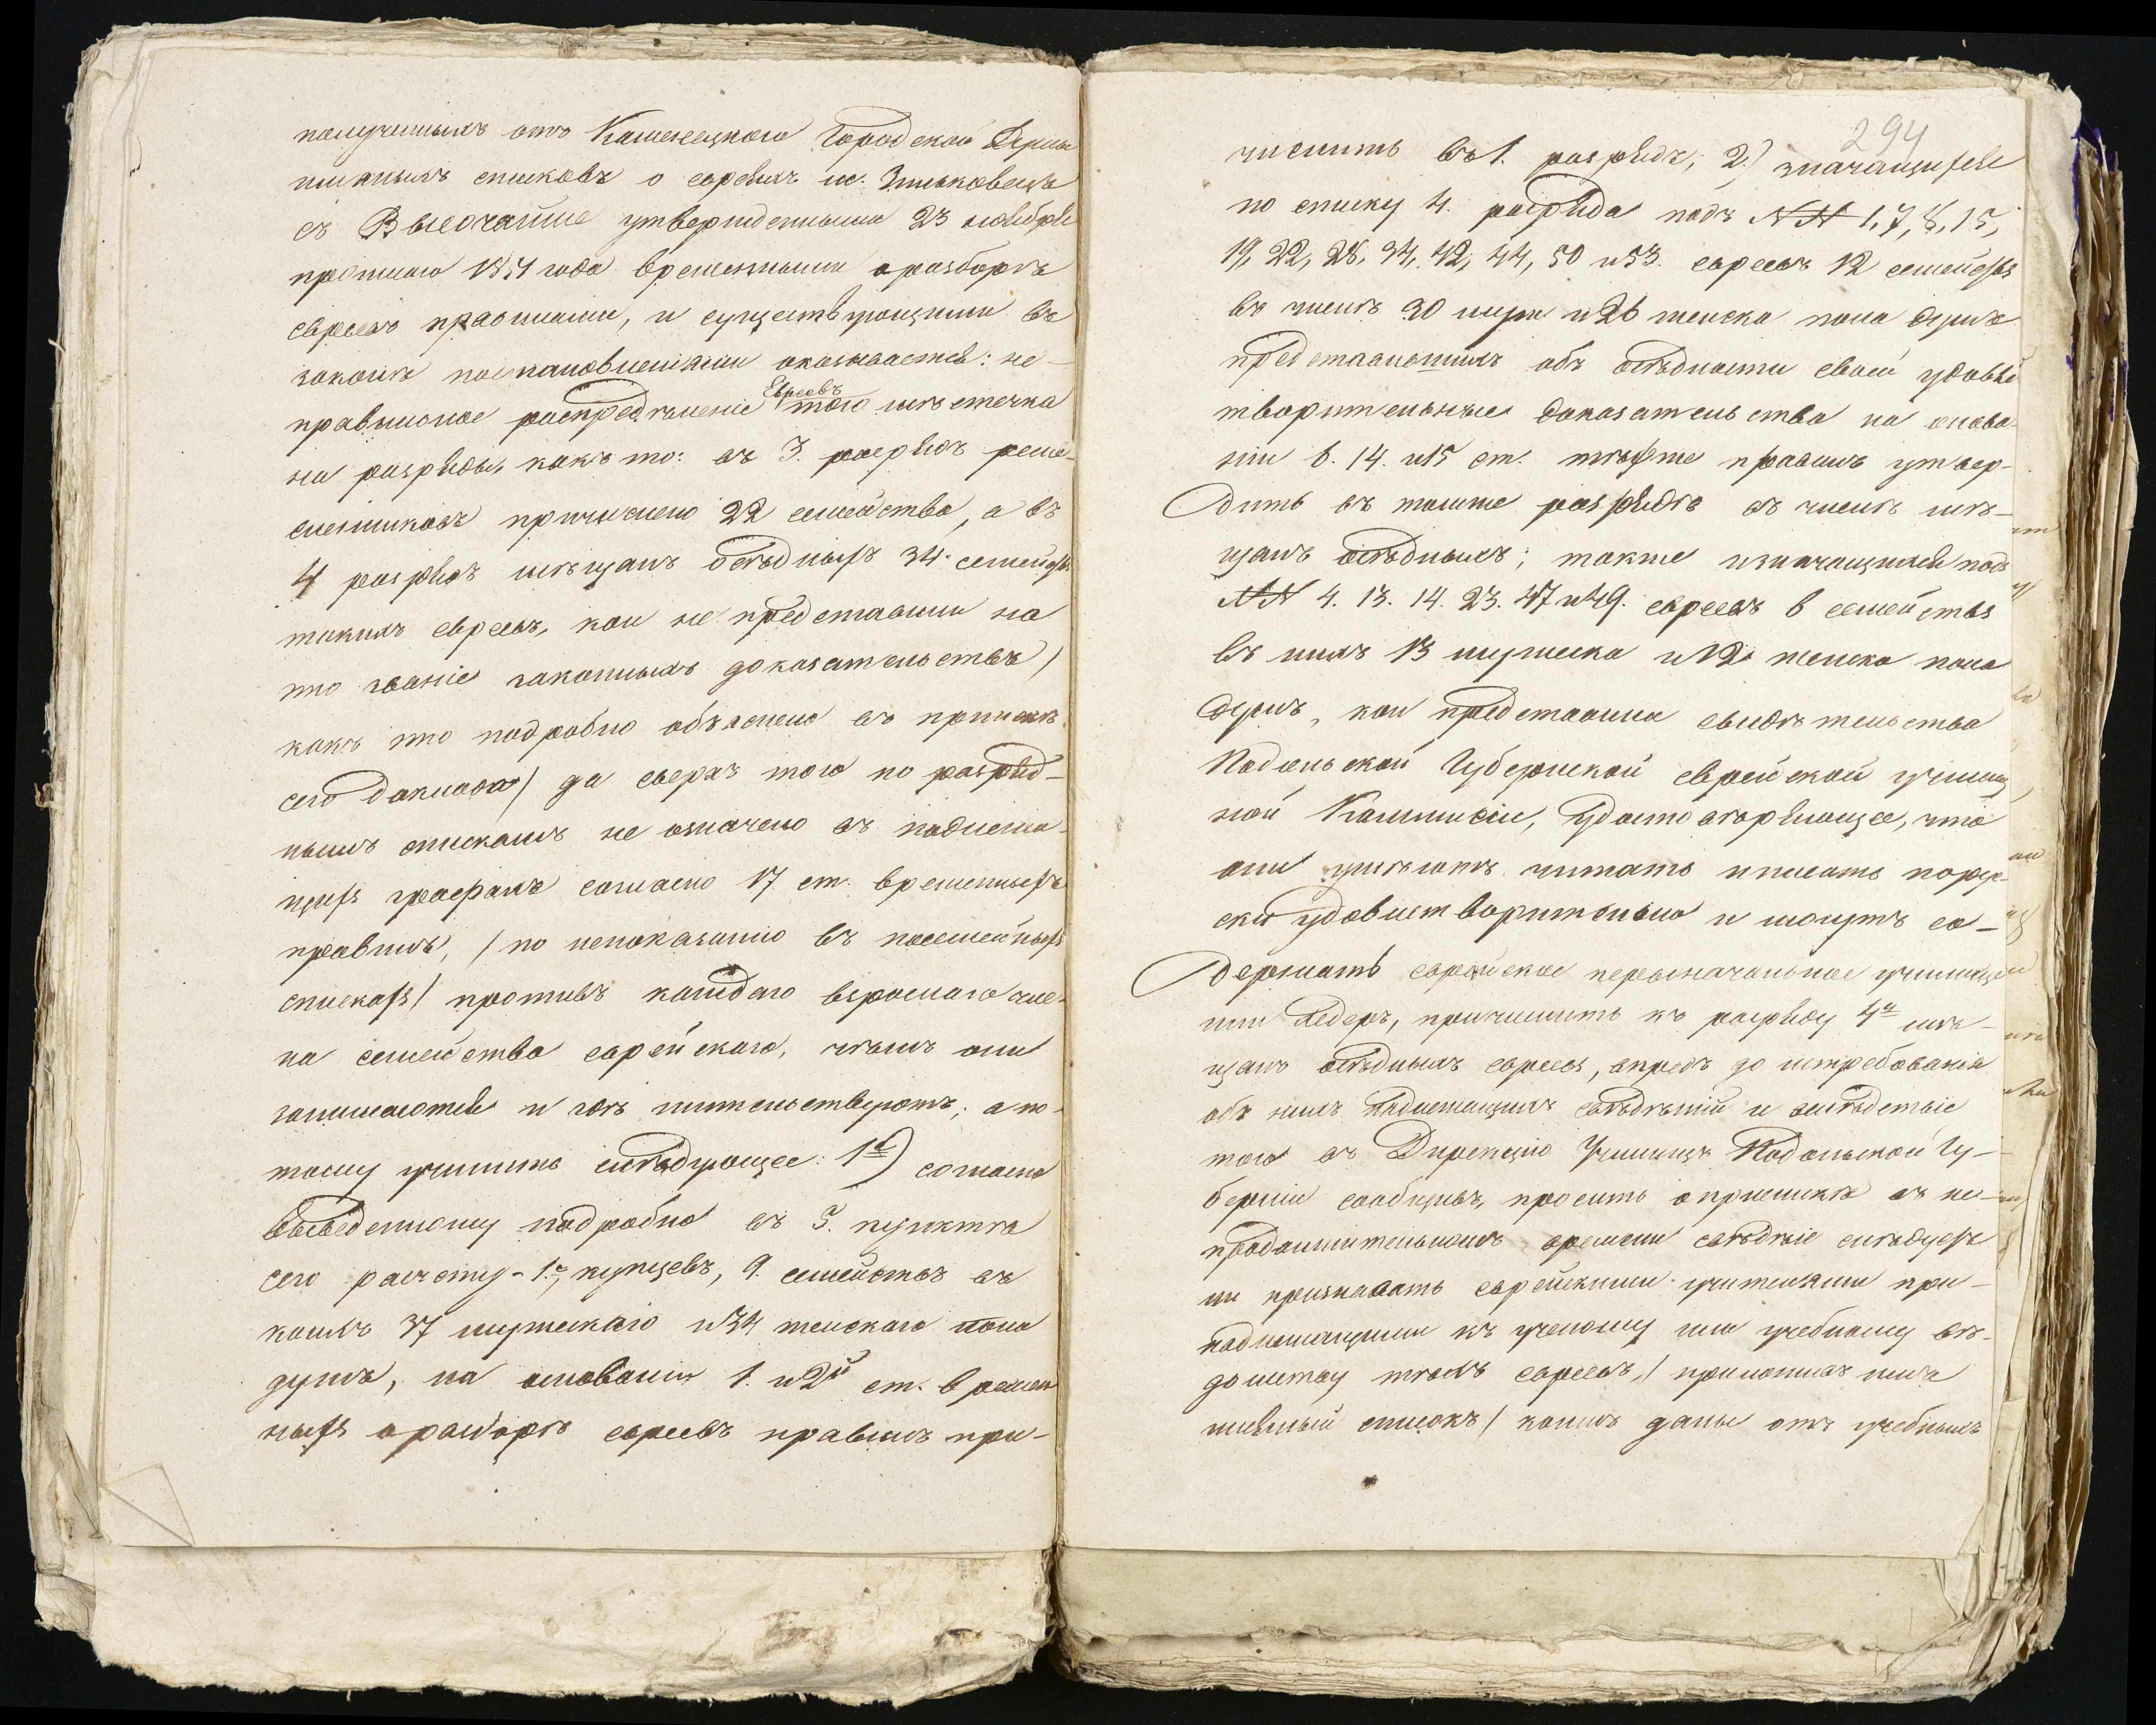 полученныхъ отъ Каменецкого Городской Думы
имянныхъ списковъ о евреяхъ м. Зиньковецъ
съ Высочайше утвержденными 23 ноября
прошлаго 1851 года временными о разборѣ
евреевъ правилами, и существующими въ
законѣ постановленіями оказывается: не-
правильное распредѣленіе Евреевъ того мѣстечка
на разряды, какъ то: въ 3. разрядъ реме-
сленниковъ причислено 22 семейства, а въ
4 разрядъ мѣщанъ осѣдлыхъ 34 семейств
такихъ евреевъ, кои не представили на
это званіе законныхъ доказательствъ /
какъ это подробно объяснено въ припискѣ
сего доклада / да сверхъ того по разряд-
нымъ спискамъ не означено въ подлежа-
щихъ графахъ согласно 17 ст. временныхъ
правилъ, / по непоказанію въ посемейныхъ
спискахъ / противъ каждаго взрослаго чле-
на семейства еврейскаго, чѣмъ они
занимаются и гдѣ жительствуютъ; а по-
тому учинить слѣдующее: 1е) согласно
выведенному подробно въ 5. пунктѣ
сего расчету - 1е, купцевъ, 9. семействъ въ
коихъ 37 мужескаго и 34 женскаго пола
душъ, на основаніи 1. и 2й ст. времен
ныхъ о разборѣ евреевъ правилъ при-
294
числить въ 1. разрядъ; 2) значащихся
по списку 4. разряда подъ NN 1, 7, 8, 15,
19, 22, 28, 34, 42, 44, 50 и 53. евреевъ 12 семействъ
въ числѣ 30 муж и 26 женска пола душъ
представившихъ объ осѣдлости своей удовле
творительные доказательства на основа-
ніи 6. 14. и 15 ст. тѣхже правилъ утвер-
дить въ томже разрядѣ въ числѣ мѣ-
щанъ осѣдлыхъ; также и значащихся подъ
NN 4. 13. 14. 23. 47 и 49. евреевъ 6 семействъ
въ нихъ 13 мужеска и 12 женска пола
душъ, кои представили свидѣтельства
Подольской Губернской еврейской училищ
ной Коммисіи, удостовѣряющее, что
они умѣютъ читать и писать порус-
ски удовлетворительно и могутъ со-
держать еврейское первоначальное училище
или Хедеръ, причислить къ разряду 4й мѣ-
щанъ осѣдлыхъ евреевъ, впредь до истребованія
объ нихъ надлежащихъ свѣдѣній и вслѣдствіе
того въ Дирекцію Училищъ Подольской Гу-
берніи сообщивъ, просить о присылкѣ въ не-
продолжительномъ времени свѣдѣніе слѣдуетъ
ли признавать еврейскими учителями при-
надлежащими къ ученому или учебному вѣ-
домству тѣхъ евреевъ, / приложивъ имъ
имянный списокъ / коимъ даны отъ учебныхъ